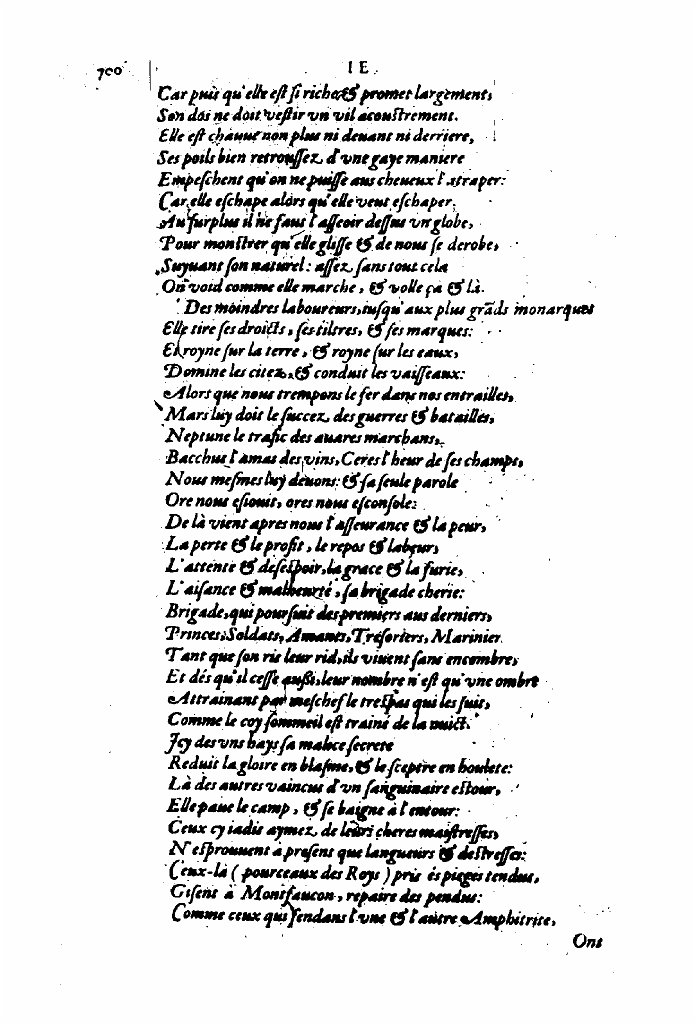 700
IE.
Car puis qu'elle est si riche & promet largement,
Son dos ne doit vestir vn vil acoustrement.
Elle est chauue non plus ni deuant ni derriere,
Ses poils bien retroussez d'vne gaye maniere
Empeschent qu'on ne puisse aus cheueux l'atraper:
Car elle eschape alors qu'elle veut eschaper.
Au surplus il ne faut l'asseoir dessus vn globe,
Pour monstrer qu'elle glisse & de nous se derobe,
Suyuant son naturel: assez sans tout cela
On void comme elle marche, & volle çà & là.
Des moindres laboureurs, iusqu'aux plus grãds monarques
Elle tire ses droicts, ses tiltres, & ses marques:
Est royne sur la terre, & royne sur les eaux,
Domine les citez, & conduit les vaisseaux:
Alors que nous trempons le fer dans nos entrailles,
Mars luy doit le succez des guerres & batailles,
Neptune le trafic des auares marchans,
Bacchus l'amas des vins, Ceres l'heur de ses champs,
Nous mesmes luy deuons: & sa seule parole
Ore nous esiouit, ores nous esconsole:
De là vient apres nous l'asseurance & la peur,
La perte & le profit, le repos & labeur,
L'attente & desespoir, la grace & la furie,
L'aisance & malheurté, sa brigade cherie:
Brigade, qui poursuit des premiers aus derniers,
Princes, Soldats, Amants, Tresoriers, Marinier.
Tant que son ris leur rid, ils viuent sans encombre,
Et dés qu'il cesse außi, leur nombre n'est qu'vne ombre
Attrainant par meschef le trespas qui les suit,
Comme le coy sommeil est trainé de la nuict.
Icy des vns hays sa malice secrete
Reduit la gloire en blasme, & le sceptre en houlete:
Là des autres vaincus d'vn sanguinaire estour,
Elle paue le camp, & se baigne à l'entour:
Ceux cy iadis aymez de leurs cheres maistresses,
N'esprouuent à present que langueurs & destresses:
Ceux-là (pourceaux des Roys) pris és pieges tendus,
Gisent à Montfaucon, repaire des pendus:
Comme ceux qui fendans l'vne & l'autre Amphitrite,
Ont